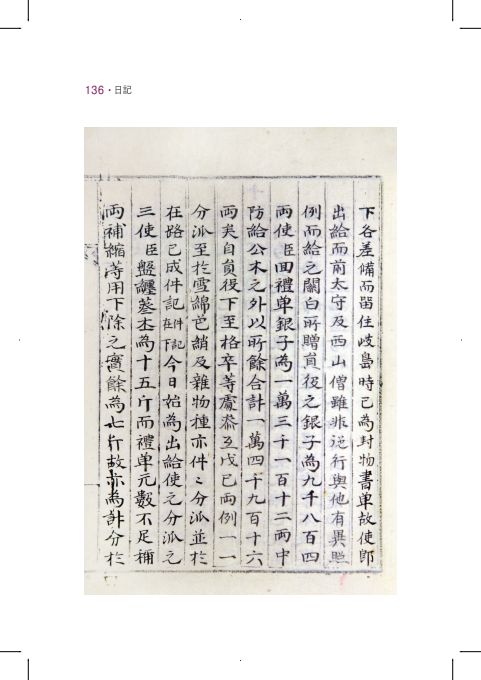 136・日記
下各差備而留住岐島時已為封物書单故使即
出給而前太守及西山僧雖非迎行與他有異照
例而給之關白所贈貟役之銀子為九千八百四
兩使臣回禮单銀子為一萬三千一百十二兩中
防給公木之外以所餘合計一萬四千九百十六
兩矣自貟役下至格卒等處叅互戊已兩例一一
分派至於雪綿芭綃及雜物種亦件〻分派並於
在路已成件記在件下記今日始為出給使之分派之
三使臣盤纏蔘本為十五斤而禮单元數不足稱
兩補縮蕁用下除之實餘為七斤故亦為計分於